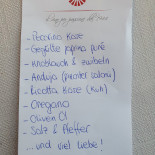 - Pecorino Käse
- Gegrillte paprika pure
- Knoblauch & zwiebeln
- Anduja (pikante salami)
- Ricotta Käse (Kuh)
- Oregano
- Oliven Öl
- Salz & Pfeffer
... und viel liebe!